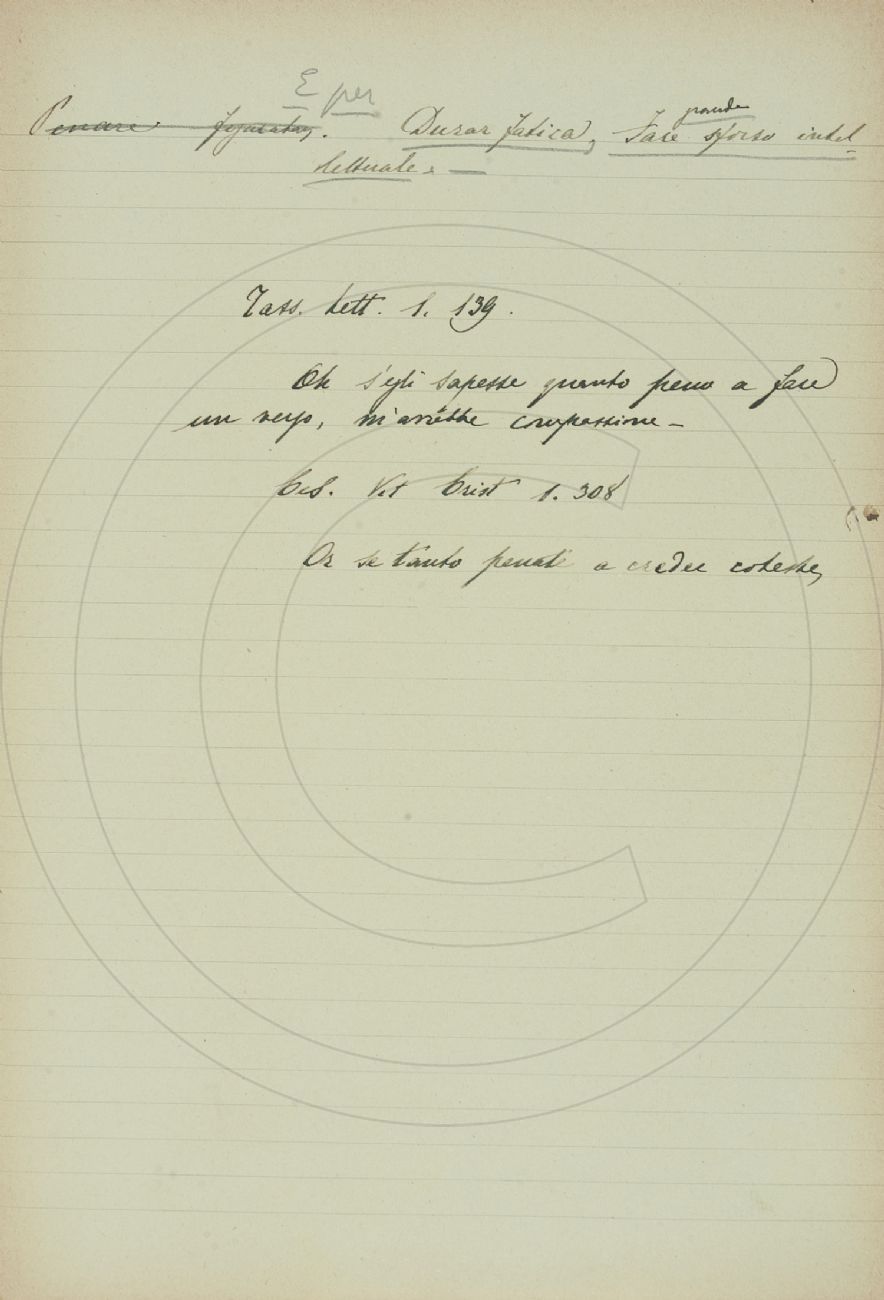 E per
Penare figuratam. Durar fatica, Fare grande sforzo intel-
lettuale. —
Tass. Lett. 1. 139.
Oh s'egli sapesse quanto peno a fare
un verso, m'avrebbe compassione -
Ces. Vit Crist 1. 308
Or se tanto penate a creder coteste,